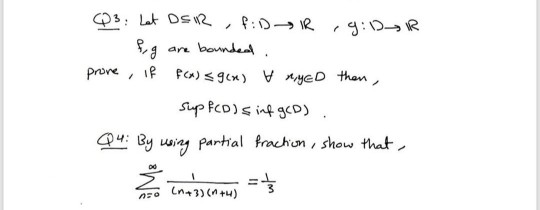 Q3: Let D⊆ℝ , f:D→ℝ , g:D→ℝ
f,g are bounded.
prove , if f(x) ≤ g(x) ∀ x,y∈D then,
sup f(D) ≤ inf g(D) .
Q4: By using partial fraction, show that,
∞
∑ 1/((n+3)(n+4)) = 1/3
n=0